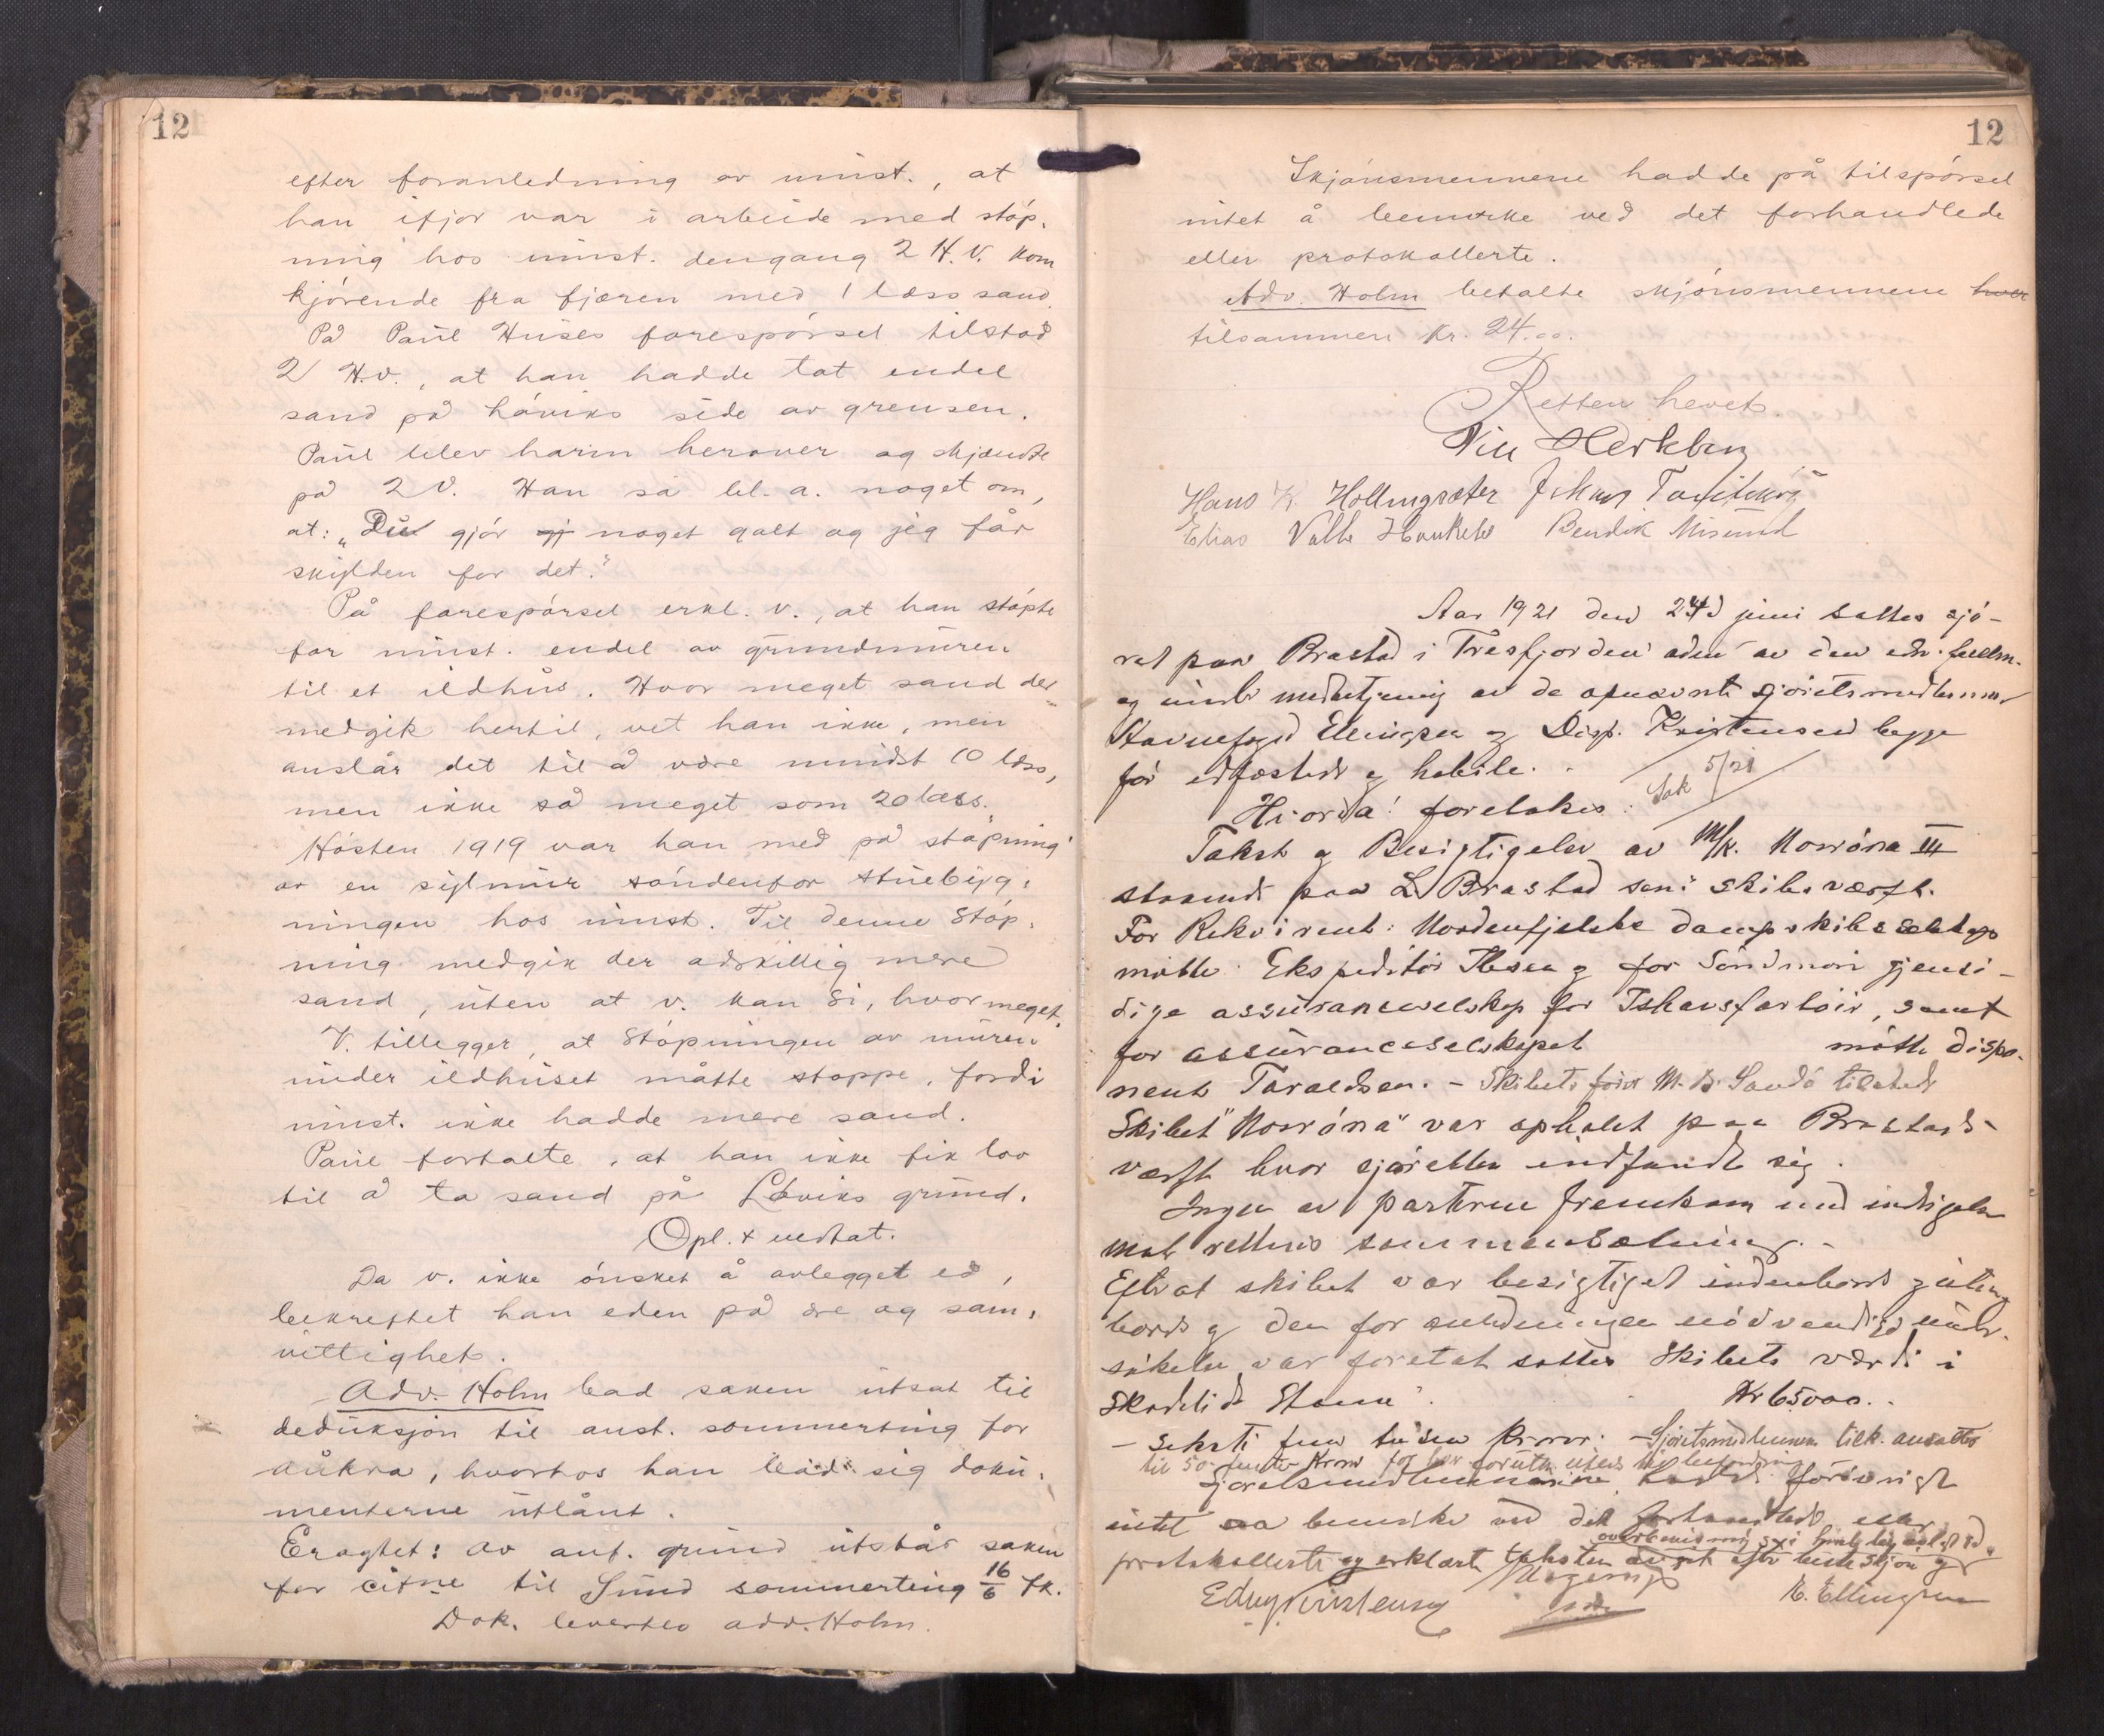 12
efter foranledning av uinst., at
han ifjor var i arbeide med støp-
ning hos uinst. dengang 2 H.V. kom
kjørende fra fjæren med 1 læss sand.
På Paul Huses forespørsel tilstod
2 H.v., at han hadde tat endel
sand på Løviks side av grensen.
Paul blev harm herover og skjendte
på 2 V. Han sa bl. a. noget om,
at: „Du gjør noget galt og jeg får
skylden for det."
På forespørsel erkl. v., at han støpte
for uinst. endel av grundmuren
til et ildhus. Hvor meget sand der
medgik hertil, vet han ikke, men
anslår det til å være mindst 10 læss,
men ikke så meget som 20 læss.
Høsten 1919 var han med på støpning
av en sylmur søndenfor stuebyg-
ningen hos uinst. Til denne støp-
ning medgik der adskillig mere
sand, uten at v. kan si, hvor meget.
V. tillegger, at støpningen av muren
under ildhuset måtte stoppe, fordi
uinst. ikke hadde mere sand.
Paul fortalte, at han ikke fik lov
til å ta sand på Løviks grund.
Opl. + vedtat.
Da v. ikke ønsket å avlegget ed,
bekreftet han eden på ære og sam-
vittighet.
Adv. Holm bad saken utsat til
deduksjon til anst. sommerting for
Aukra, hvorhos han bad sig doku-
menterne utlånt.
Eragtet: Av anf. grund utstår saken
for citne til Sund sommerting 16/6 fk.
Dok. levertes adv. Holm.
12
Skjønsmennene hadde på tilspørsel
intet å bemerke ved det forhandlede
eller protokollerte.
Adv. Holm betalte skjønsmennene hver
tilsammen kr. 24.00.
Retten hevet.
Hans K. Hollingsæter
Elias Valle Bendik Misund
Aar 1921 den 24d juni sattes sjø-
ret paa Brastad i Tresfjorden av den edv. fullm.
og under medbetjening av de opnævnte sjøretsmedlemmer
Havnefogd Ellingsen og Disp. Kristensen begge
før edfæstede og habile.
Sak 5/21
Hvorda! foretokes:
Takst og Besigtigelse av M/K. Norrøna III
staaende paa L. Brastad sen: skibsværft.
For Rekvirent: Nordenfjelske dampskibsselskap
møtte Ekspeditør Ibsen og for Søndmør gjensi-
dige assuranceselskap for Ishavsfartøir, samt
for assuranceselskapet møtte dispo-
nent Taraldsen. - Skibets fører M. B. Sandø tilstede
Skibet "Norrøna" var ophalet paa Brastads-
værft hvor sjøretten indfandt sig.
Ingen av parterne fremkom med indsigelse
mot rettens sammensætning. -
Efterat skibet var besigtiget indenbords og uten-
bords og den for anledningen nødvendige under-
søkelse var foretat sattes Skibets værdi i
Skadelidt Stand Kr 65000.
- Seksti fem tusen Kroner. - Sjøretsmedlemmene tilk. ansattes
til 50 femti Kroner for hver
Sjøretsmedlemmerne hadde forøvrigt
intet at bemerke ved det forhandlede eller
protokollerte og erklærte taksten efter beste skjøn og
Edv. Kristensen
K. Ellingsen